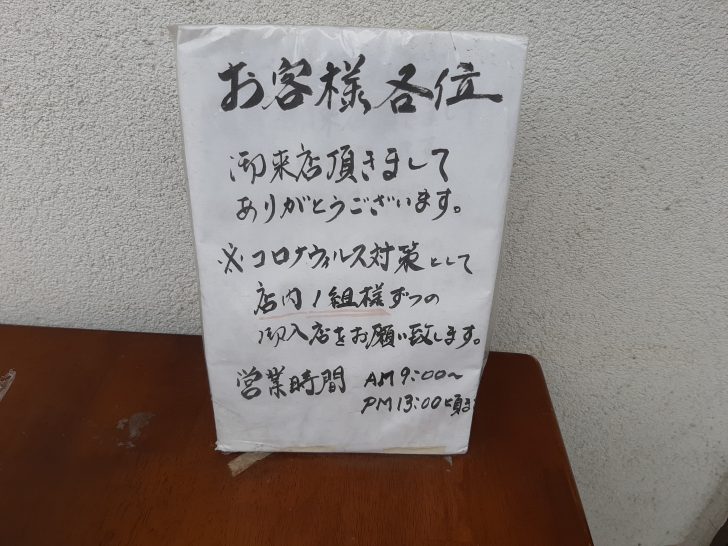 お客様各位
御来店頂きまして
ありがとうございます。
※コロナウィルス対策として
店内1組様ずつの
御入店をお願い致します。
営業時間 AM9:00〜
PM13:00頃まで